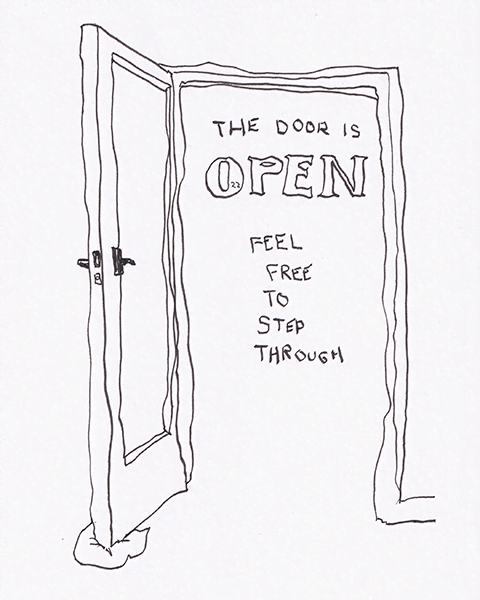 THE DOOR IS
OPEN
22
FEEL
FREE
TO
STEP
THROUGH